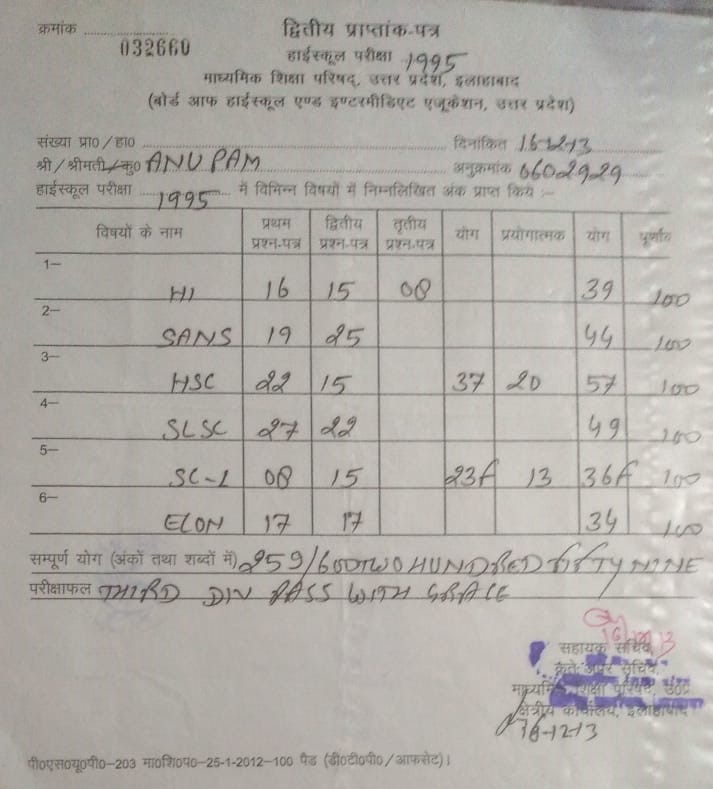 द्वितीय प्राप्तांक-पत्र
क्रमांक .................... 032660
हाईस्कूल परीक्षा 1995
माध्यमिक शिक्षा परिषद्, उत्तर प्रदेश, इलाहाबाद
(बोर्ड आफ हाईस्कूल एण्ड इण्टरमीडिएट एजूकेशन, उत्तर प्रदेश)
संख्या प्रा0/हा0 .................... दिनांकित 16-12-13
श्री/श्रीमती/कु0 ANUPAM .................... अनुक्रमांक 0602929
हाईस्कूल परीक्षा 1995 में विभिन्न विषयों में निम्नलिखित अंक प्राप्त किये :-
विषयों के नाम प्रथम प्रश्न-पत्र द्वितीय प्रश्न-पत्र तृतीय प्रश्न-पत्र योग प्रयोगात्मक योग पूर्णांक
1- HI 16 15 08 39 100
2- SANS 19 25 44 100
3- HSC 22 15 37 20 57 100
4- SLSC 27 22 49 100
5- SC-1 08 15 23f 13 36f 100
6- ECON 17 17 34 100
सम्पूर्ण योग (अंकों तथा शब्दों में) 259/600 TWO HUNDRED FIFTY NINE
परीक्षाफल THIRD DIV PASS WITH GRACE
सहायक सचिव,
कृते अपर सचिव,
माध्यमिक शिक्षा परिषद, उ0प्र0
क्षेत्रीय कार्यालय, इलाहाबाद
16-12-13
पी0एस0यू0पी0-203 मा0शि0प0-25-1-2012-100 पैड (डी0टी0पी0/आफसेट)।